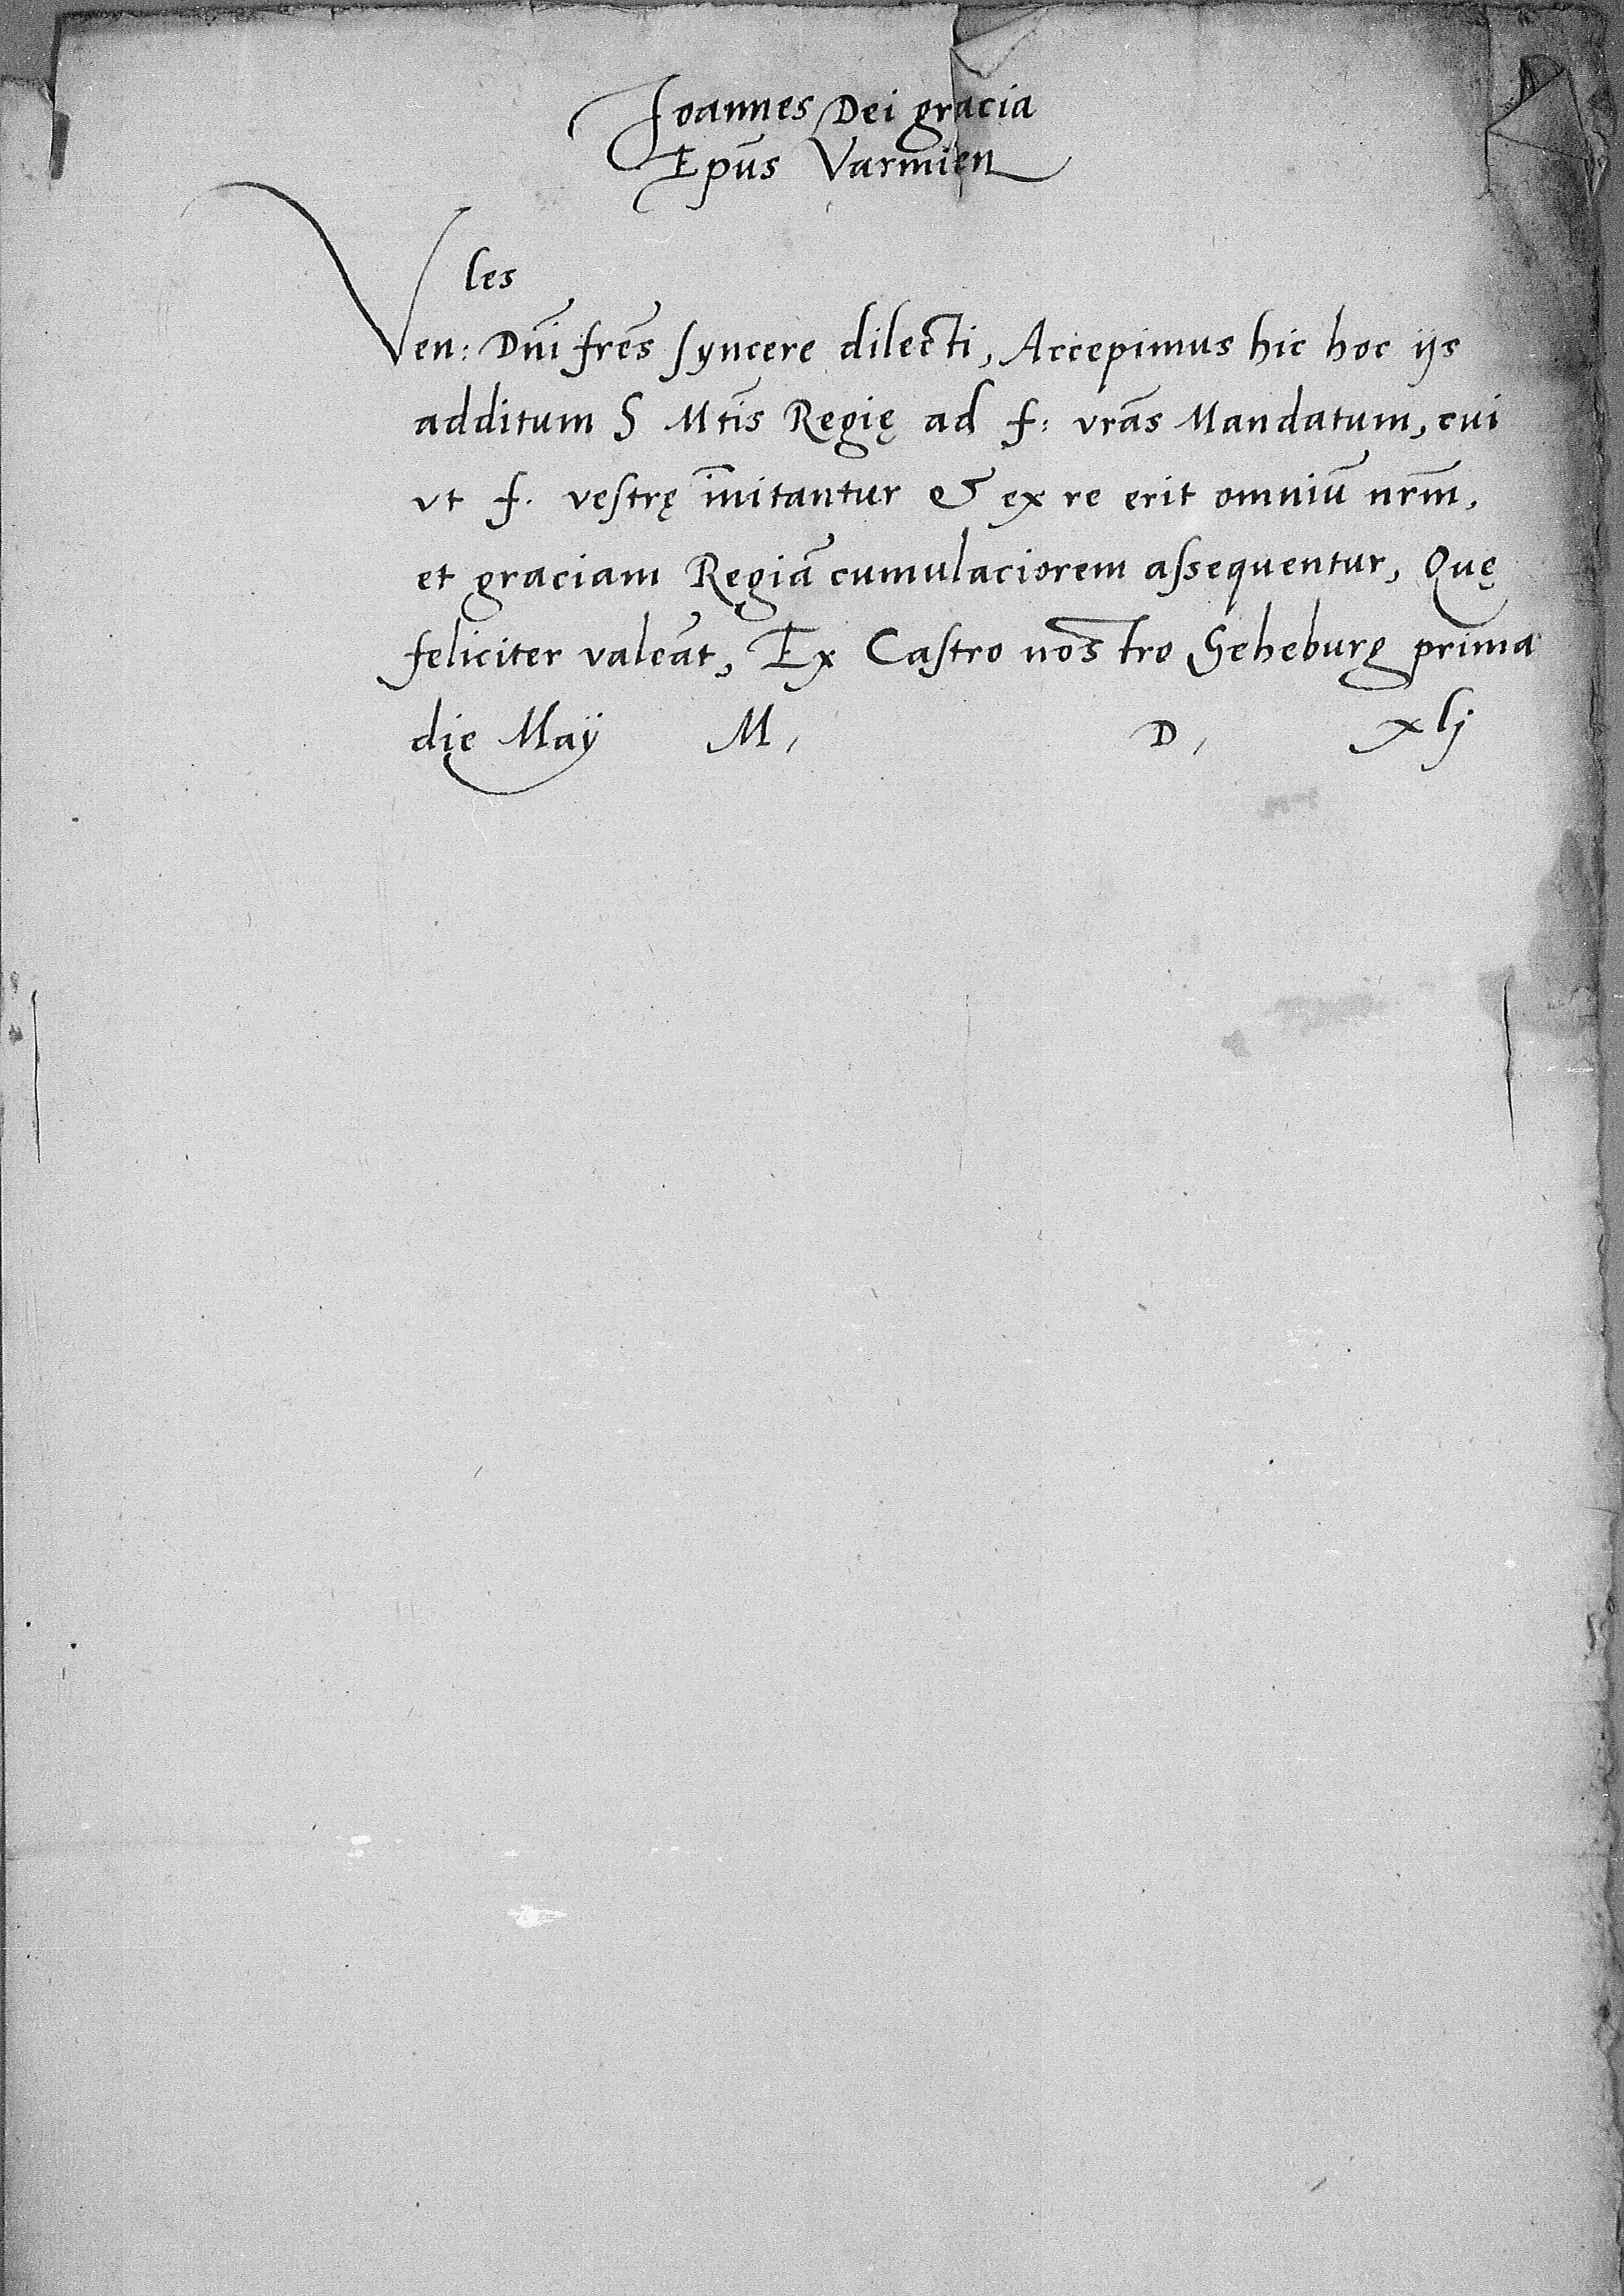 Joannes Dei gracia
Epūs Varmien
les
Ven: Dn̄i frēs syncere dilecti, Accepimus hic hoc ijs
additum S Mtīs Regię ad f: vrās Mandatum, cui
vt f. vestrę īnitantur & ex re erit omniū nrm̄,
et graciam Regiā cumulaciorem assequentur, Quę
feliciter valeāt, Ex Castro nostro Seheburg prima
die Maÿ M, D, xlj